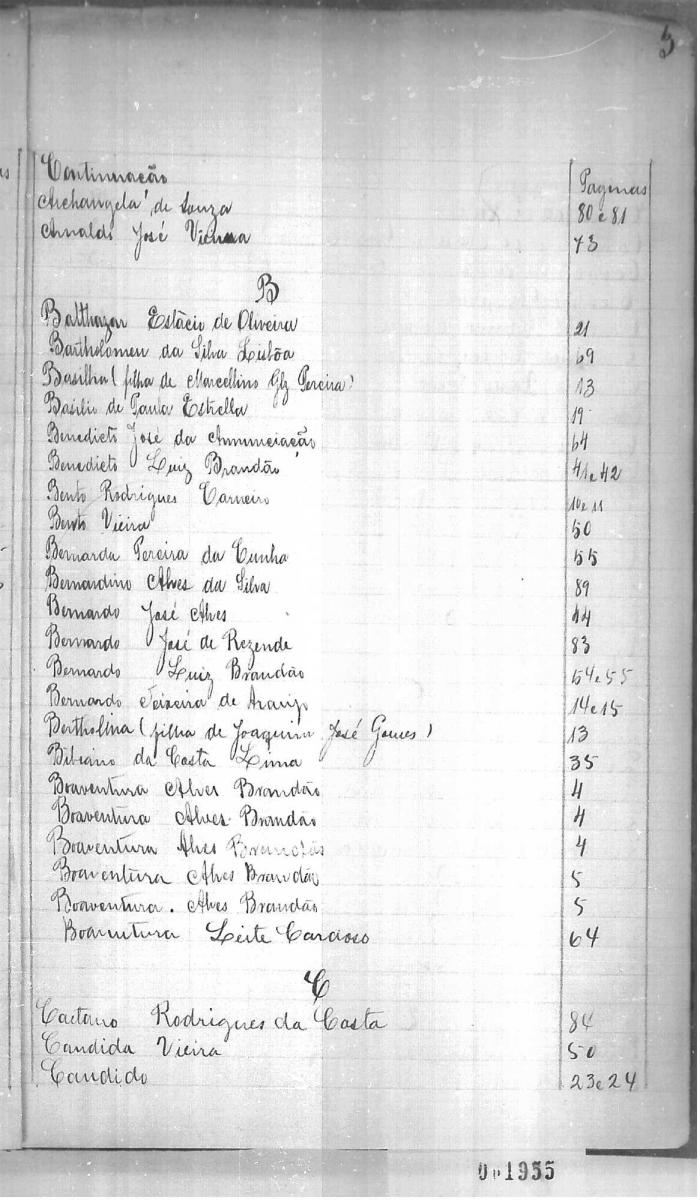 5
Continuação Paginas
Archangela de Souza 80 e 81
Arnaldo José Vieira 73
B
Balthazar Estácio de Oliveira 21
Bartholomeu da Silva Lisbôa 69
Basilha (filha de Marcellino Glz Pereira) 13
Basilio de Paula Estrella 19
Benedicto José da Annunciação 64
Benedicto Luiz Brandão 41 e 42
Bento Rodrigues Carneiro 10 e 11
Bento Vieira 50
Bernarda Pereira da Cunha 55
Bernardino Alves da Silva 89
Bernardo José Alves 44
Bernardo José de Rezende 83
Bernardo Luiz Brandão 54 e 55
Bernardo Teixeira de Araujo 14 e 15
Bertholina (filha de Joaquim José Gomes) 13
Bibiano da Costa Lima 35
Boaventura Alves Brandão 4
Boaventura Alves Brandão 4
Boaventura Alves Brandão 4
Boaventura Alves Brandão 5
Boaventura. Alves Brandão 5
Boaventura Leite Cardoso 64
C
Caetano Rodrigues da Costa 84
Candida Vieira 50
Candido 23 e 24
1955